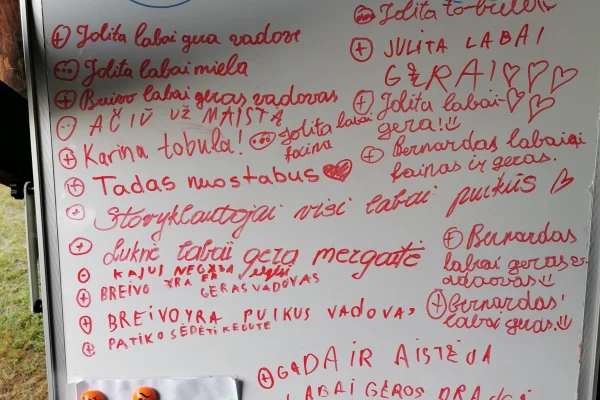 Jolita labai gera vadovė
Jolita labai miela
Breivo labai geras vadovas
AČIŪ UŽ MAISTĄ
Karina tobula!
Jolita labai
faina
Tadas nuostabus
Stovyklautojai visi labai puikūs
Luknė labai gera mergaitė
KAJUS
BREIVO YRA
GERAS VADOVAS
BREIVO YRA PUIKUS VADOVAS
PATIKO SĖDĖTI KEDUTĖ
Jolita tobula
JULITA LABAI
GERA!
Jolita labai
gera!
Bernardas labai
fainas ir geras.
Bernardas
labai geras v-
adovas
Bernardas
labai geras!
IR AISTĖJA
LABAI GEROS